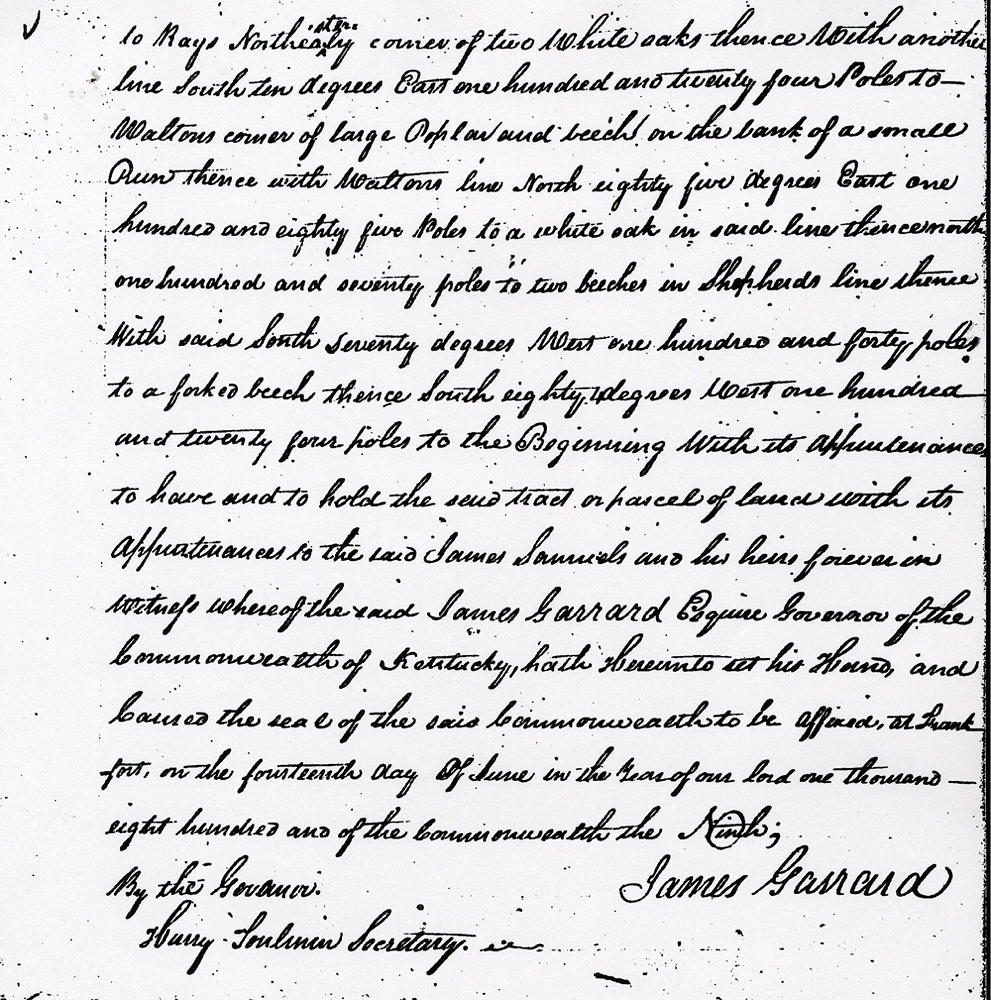 to Rays Northeasterly corner of two White oaks thence With another
line South ten degrees East one hundred and twenty four Poles to—
Waltons corner of large Poplar and beech on the bank of a small
Run thence with Waltons line North eighty five degrees East one
hundred and eighty five Poles to a white oak in said line thence north
one hundred and seventy poles to two beeches in Shepherds line thence
With said South seventy degrees West one hundred and forty poles
to a forked beech thence South eighty degrees West one hundred
and twenty four poles to the Beginning With its Appurtenances
to have and to hold the said tract or parcel of land with its
Appurtenances to the said James Samuels and his heirs forever in
Witness whereof the said James Garrard Esquire Governor of the
Commonwealth of Kentucky, hath Hereunto set his Hand, and
Caused the seal of the said Commonwealth to be affixed, at Frank
fort, on the fourteenth day Of June in the Year of our lord one thousand —
eight hundred and of the Commonwealth the Ninth;
By the Govanor. James Garrard
Harry Toulmin Secretary.